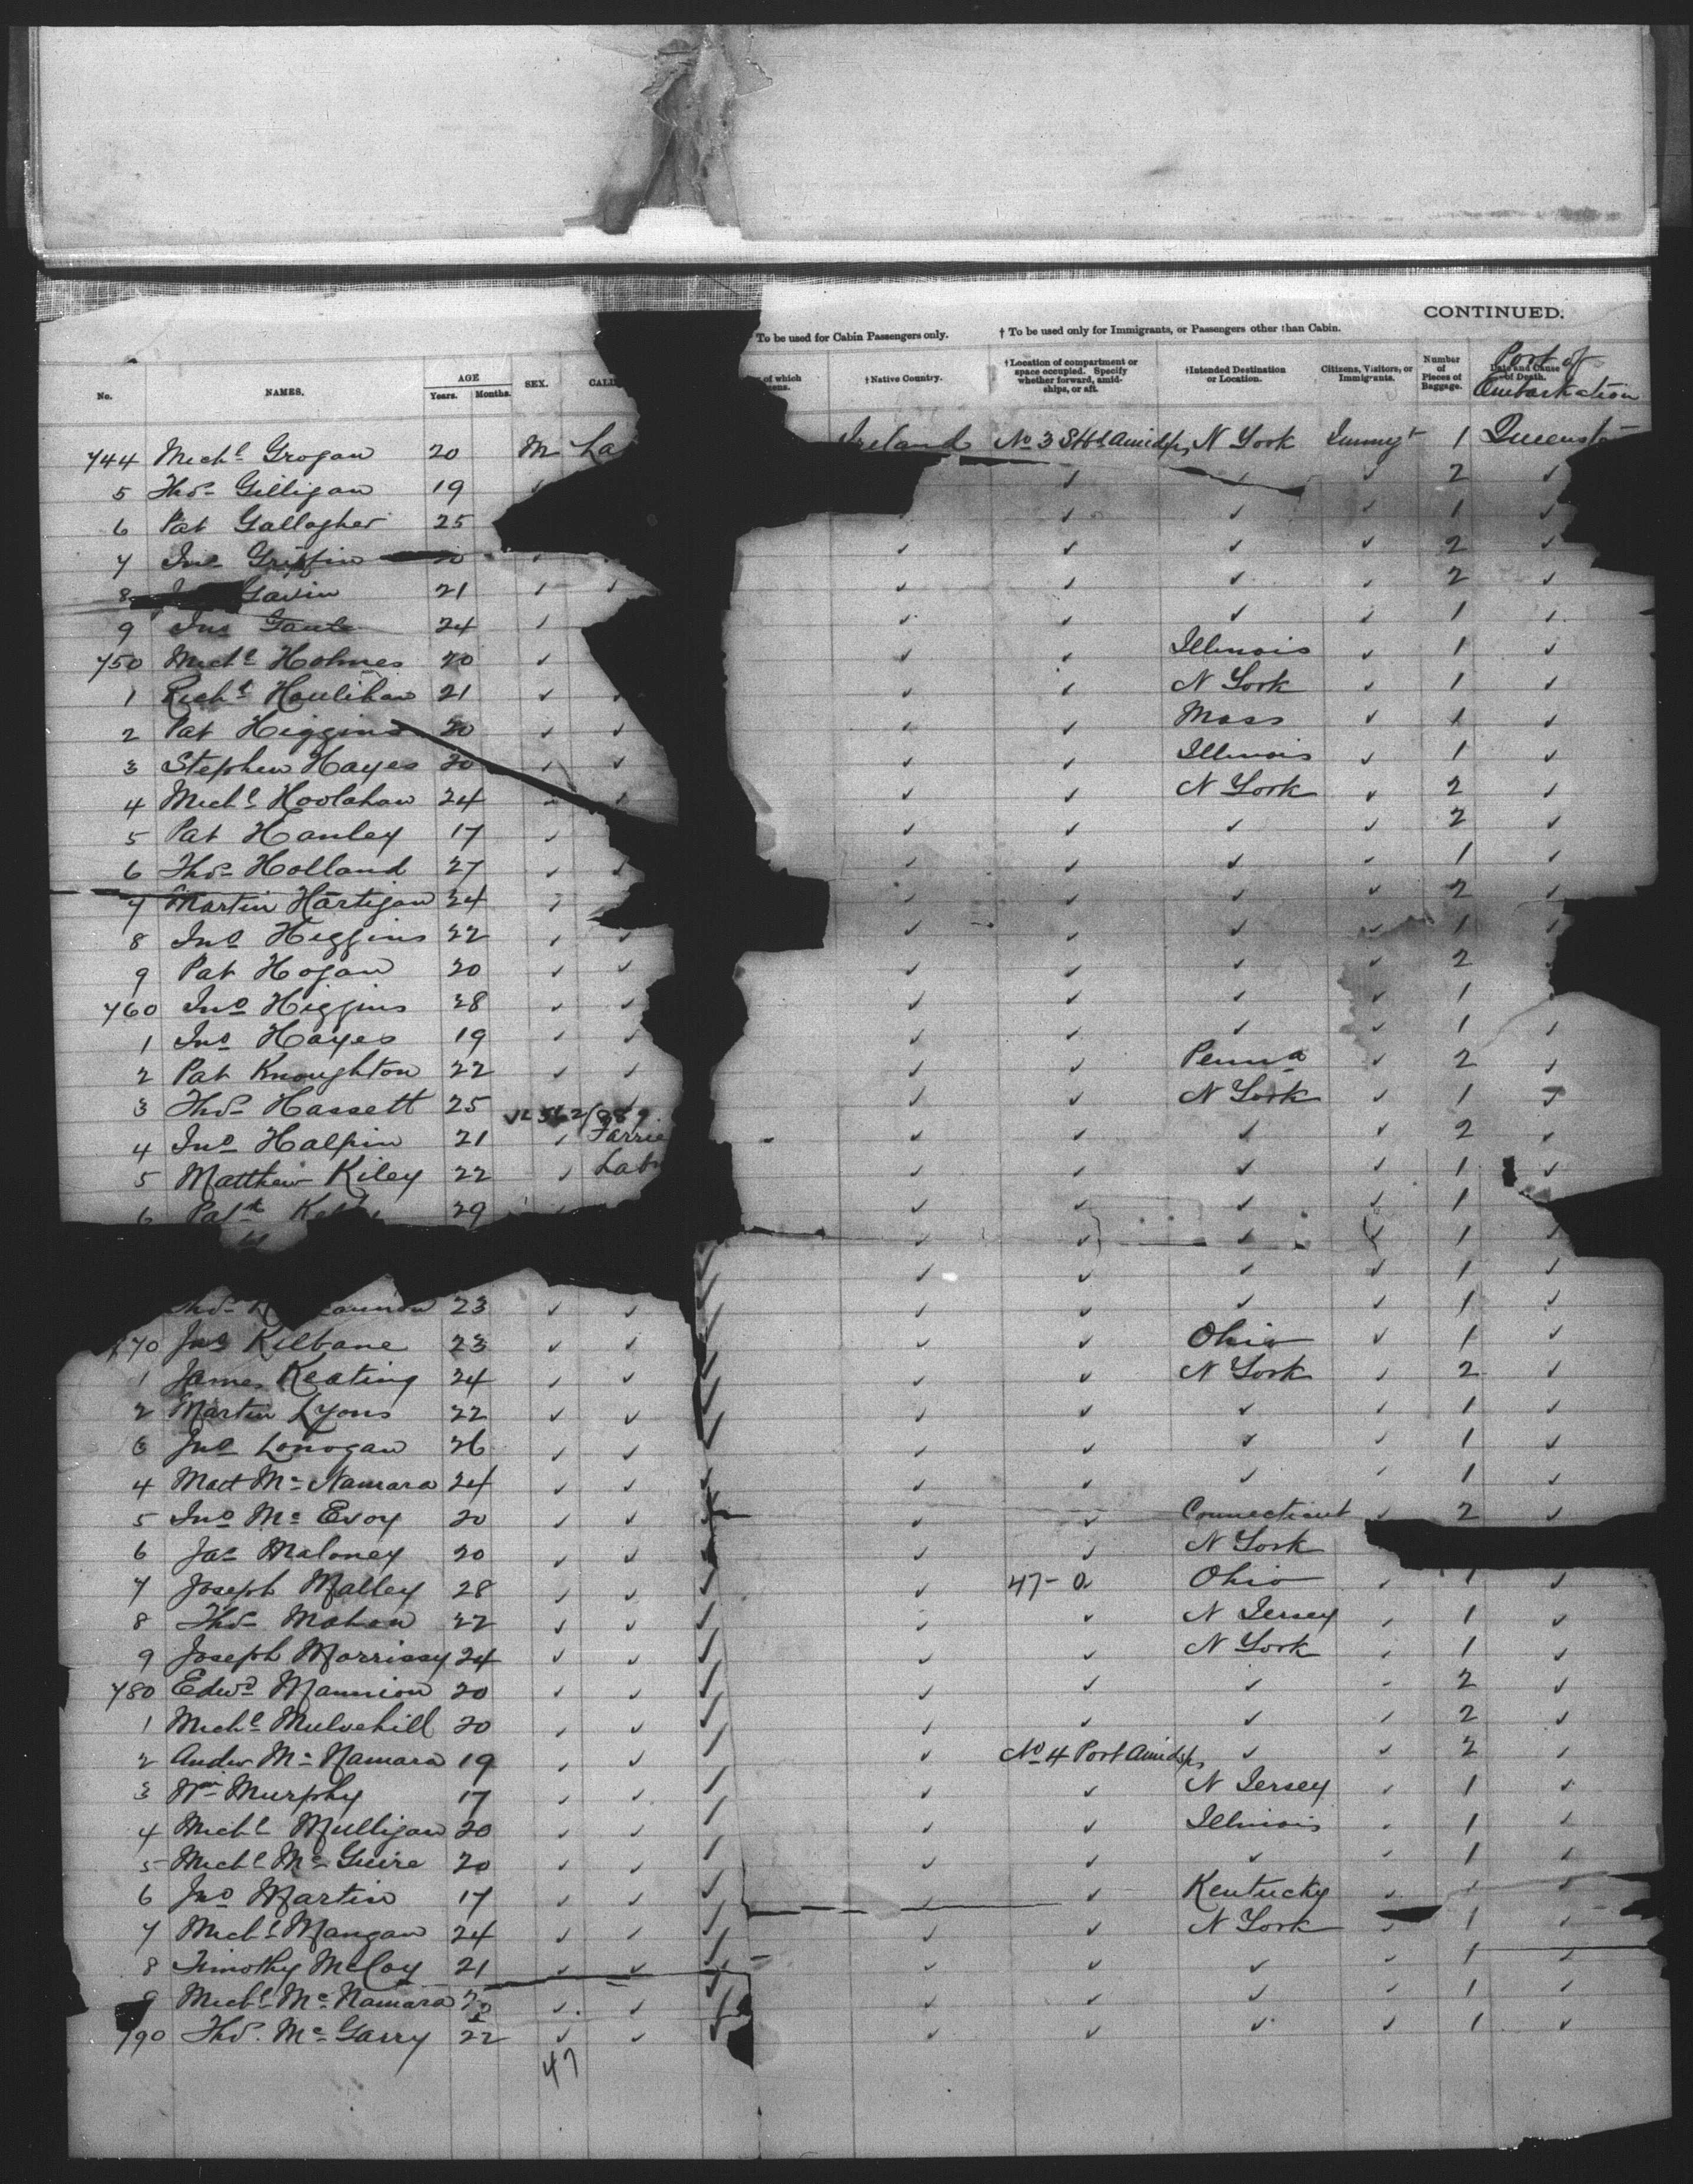 CONTINUED.
To be used for Cabin Passengers only. † To be used only for Immigrants, or Passengers other than Cabin.
No. NAMES. AGE Years. Months. SEX. CALL of which †Native Country. †Location of compartment or space occupied. Specify whether forward, amidships, or aft. †Intended Destination or Location. Citizens, Visitors, or Immigrants. Number of Pieces of Baggage. Date and Cause of Death. Port of Embarkation
744 Michl Grogan 20 M La Ireland No 3 N York Immigt 1 Queensto
5 Thos Gilligan 19 ✓ ✓ ✓ 2 ✓
6 Pat Gallagher 25 ✓ ✓ ✓ 1 ✓
7 Jno Griffin 20 ✓ ✓ ✓ ✓ ✓ 2 ✓
8 Gavin 21 ✓ ✓ ✓ ✓ ✓ ✓ 2 ✓
9 Jno Gaul 24 ✓ ✓ ✓ ✓ ✓ 1 ✓
750 Michl Holmes 20 ✓ ✓ ✓ Illinois ✓ 1 ✓
1 Richd Houlihan 21 ✓ ✓ ✓ ✓ N York ✓ 1 ✓
2 Pat Higgins 20 ✓ ✓ ✓ ✓ Mass ✓ 1 ✓
3 Stephen Hayes 20 ✓ ✓ ✓ ✓ Illinois ✓ 1 ✓
4 Michl Hoolahan 24 ✓ ✓ ✓ ✓ N York ✓ 2 ✓
5 Pat Hanley 17 ✓ ✓ ✓ ✓ ✓ 2 ✓
6 Thos Holland 27 ✓ ✓ ✓ ✓ ✓ ✓ 1 ✓
7 Martin Hartigan 24 ✓ ✓ ✓ ✓ ✓ 2 ✓
8 Jno Higgins 22 ✓ ✓ ✓ ✓ ✓ ✓ 1 ✓
9 Pat Hogan 20 ✓ ✓ ✓ ✓ ✓ ✓ 2
760 Jno Higgins 28 ✓ ✓ ✓ ✓ ✓ ✓ 1
1 Jno Hayes 19 ✓ ✓ ✓ ✓ ✓ ✓ 1 ✓
2 Pat Knoughton 22 ✓ ✓ ✓ ✓ Penna ✓ 2 ✓
3 Thos Hassett 25 ✓ ✓ ✓ N York ✓ 1 ✓
4 Jno Halpin 21 ✓ Farrie ✓ ✓ ✓ ✓ 2 ✓
5 Matthew Kiley 22 ✓ Labr ✓ ✓ ✓ ✓ 1 ✓
6 Patk 29 ✓ ✓ ✓ ✓ ✓ 1
✓ ✓ ✓ ✓ 1 ✓
✓ ✓ ✓ ✓ 1 ✓
Thos 23 ✓ ✓ ✓ ✓ ✓ ✓ 1 ✓
770 Jno Kilbane 23 ✓ ✓ ✓ ✓ Ohio ✓ 1 ✓
1 James Keating 24 ✓ ✓ ✓ ✓ ✓ N York ✓ 2 ✓
2 Martin Lyons 22 ✓ ✓ ✓ ✓ ✓ ✓ ✓ 1 ✓
3 Jno Lonogan 26 ✓ ✓ ✓ ✓ ✓ ✓ 1 ✓
4 Matt McNamara 24 ✓ ✓ ✓ ✓ ✓ ✓ ✓ 1 ✓
5 Jno McEvoy 20 ✓ ✓ ✓ ✓ Connecticut ✓ 2 ✓
6 Jas Maloney 20 ✓ ✓ ✓ ✓ N York
7 Joseph Malley 28 ✓ ✓ ✓ ✓ 47- Ohio ✓ 1 ✓
8 Thos Mahon 22 ✓ ✓ ✓ ✓ ✓ N Jersey ✓ 1 ✓
9 Joseph Morrissy 24 ✓ ✓ ✓ ✓ ✓ N York ✓ 1 ✓
780 Edwd Mannion 20 ✓ ✓ ✓ ✓ ✓ ✓ ✓ 2 ✓
1 Michl Mulvehill 20 ✓ ✓ ✓ ✓ ✓ ✓ ✓ 2 ✓
2 Andw McNamara 19 ✓ ✓ ✓ ✓ No 4 Port Amidsps ✓ ✓ 2 ✓
3 Wm Murphy 17 ✓ ✓ ✓ ✓ ✓ N Jersey ✓ 1 ✓
4 Michl Mulligan 20 ✓ ✓ ✓ ✓ ✓ Illinois ✓ 1 ✓
5 Michl McGuire 20 ✓ ✓ ✓ ✓ ✓ ✓ ✓ 1 ✓
6 Jno Martin 17 ✓ ✓ ✓ ✓ ✓ Kentucky ✓ 1 ✓
7 Michl Mangan 24 ✓ ✓ ✓ ✓ ✓ N York ✓ 1 ✓
8 Timothy McCoy 21 ✓ ✓ ✓ ✓ ✓ ✓ ✓ 1 ✓
9 Michl McNamara ✓ ✓ ✓ ✓ ✓ ✓ ✓ 1 ✓
790 Thos. McGarry 22 ✓ ✓ ✓ ✓ ✓ ✓ ✓ 1 ✓
47